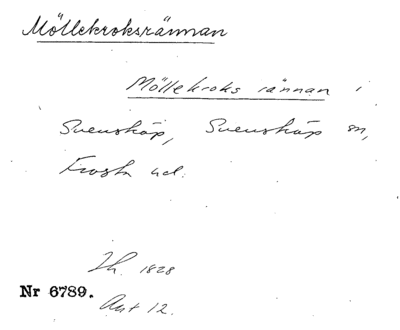 Möllekroksrännan
Möllekroks rännan i
Svensköp, Svensköp sn,
Frosta hd.
Lh. 1828
Nr 6789.
Akt 12.